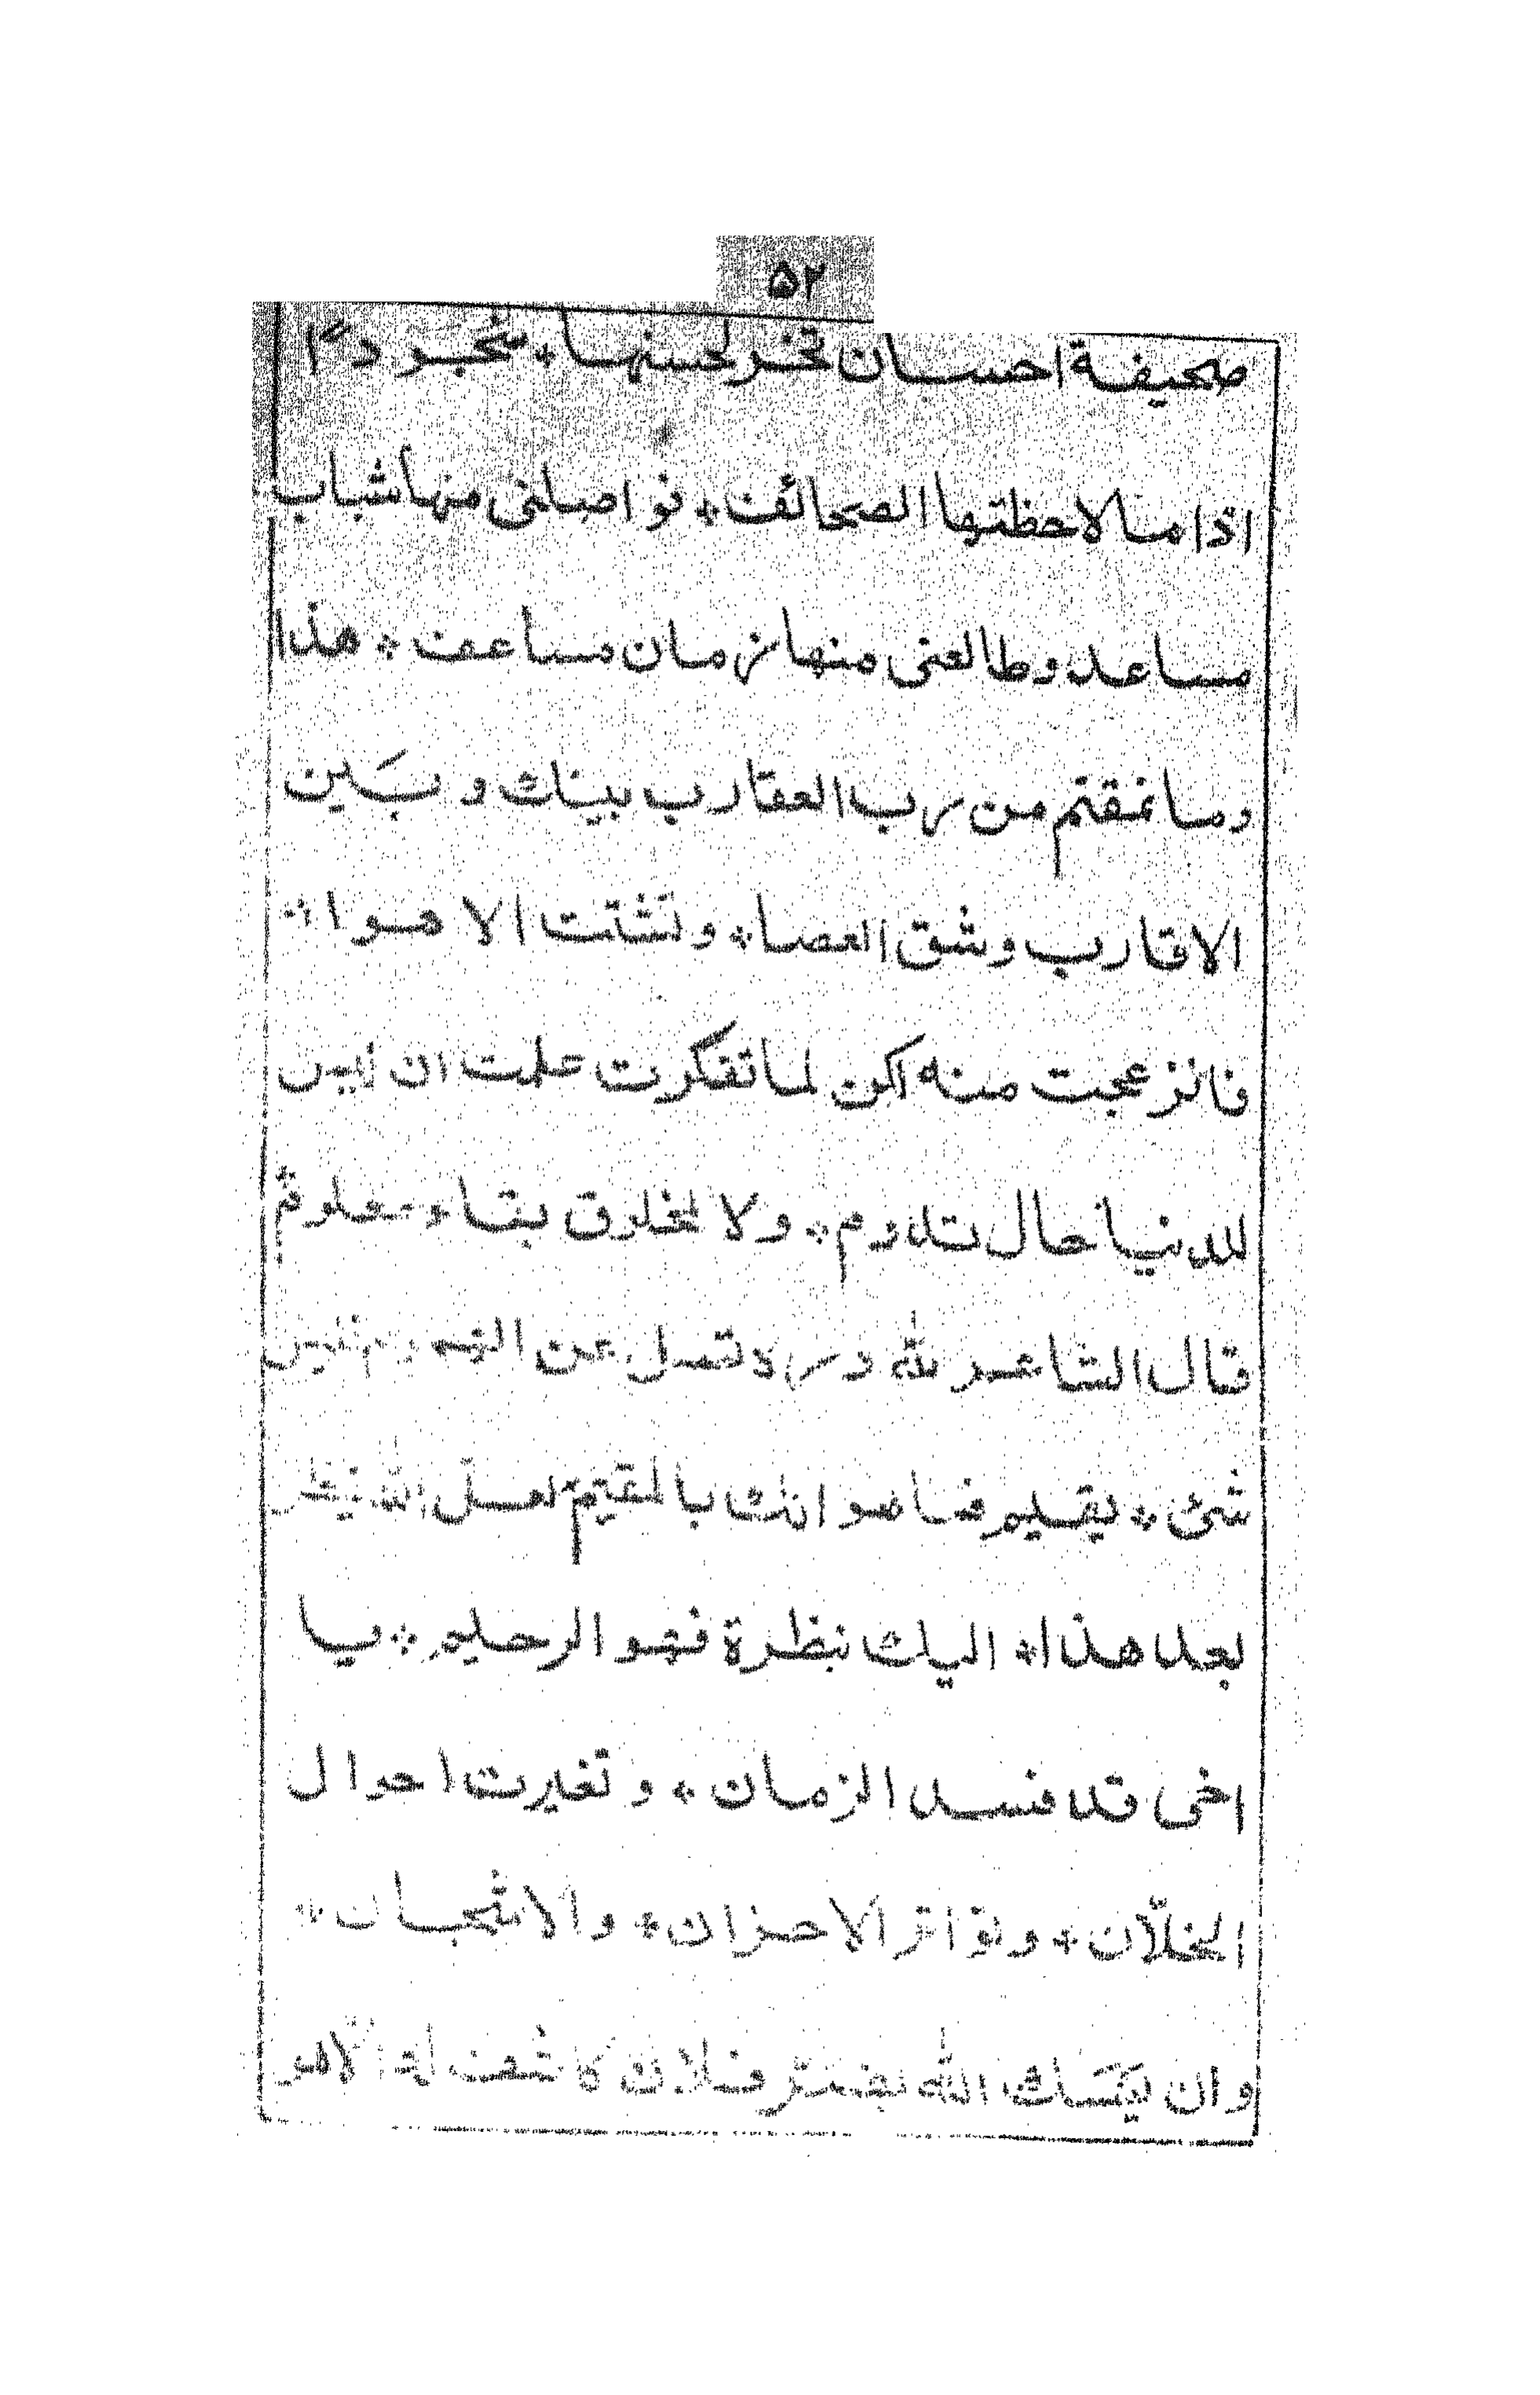 ۵۲
صحيفة احسان تخر لحسنها * سجودًا
اذا ما لاحظتها الصحائف * نواصلنى منها شباب
مساعد وطالعنى منها زمان مساعف * هذا
وما نمقتم من رب العقارب بينك وبَين
الاقارب وشق العصا * وتشتت الاهوا *
فانزعجت منه لكن لما تفكرت علمت ان ليس
للدنيا حال تدوم * ولا لمخلوق بقاء معلوم
قال الشاعر لله دره لا تسل عن فليس
شئ * يقيم فما هوانك بالمقيم لعل الله ينظر
بعد هذا * اليك نبظرة فهو الرحليم * يا
اخى قد فسد الزمان * وتغيرت احوال
الخلّان * وتواتر الاحزان * والاشجان *
وان يَمْسَسك الله بضر فلا كاشف له الّا هو